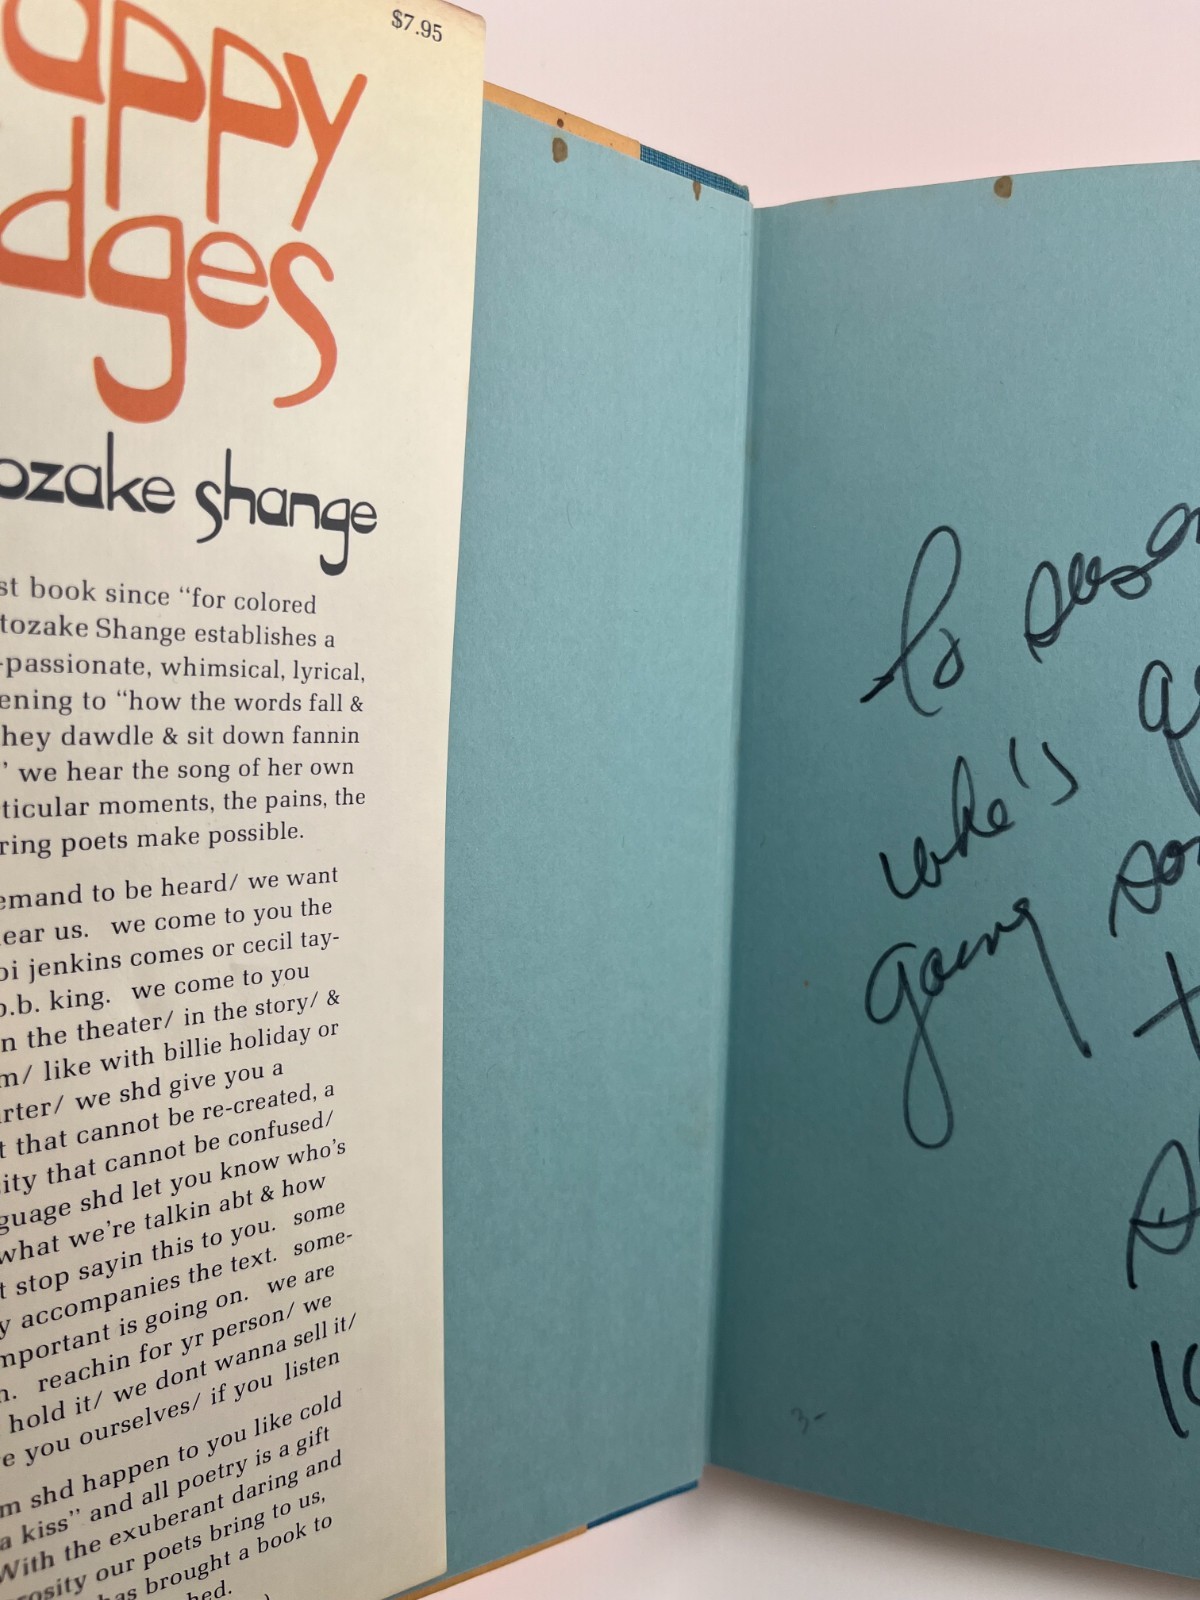 $7.95
appy
dges
ozake shange
st book since “for colored
tozake Shange establishes a
-passionate, whimsical, lyrical,
ening to “how the words fall &
hey dawdle & sit down fannin
” we hear the song of her own
ticular moments, the pains, the
ring poets make possible.
emand to be heard/ we want
ear us. we come to you the
oi jenkins comes or cecil tay-
b.b. king. we come to you
n the theater/ in the story/ &
m/ like with billie holiday or
rter/ we shd give you a
t that cannot be re-created, a
ity that cannot be confused/
guage shd let you know who's
what we're talkin abt & how
t stop sayin this to you. some
y accompanies the text. some-
mportant is going on. we are
n. reachin for yr person/ we
hold it/ we dont wanna sell it/
e you ourselves/ if you listen
m shd happen to you like cold
a kiss” and all poetry is a gift
With the exuberant daring and
rosity our poets bring to us,
has brought a book to
hed.
To
who's
going